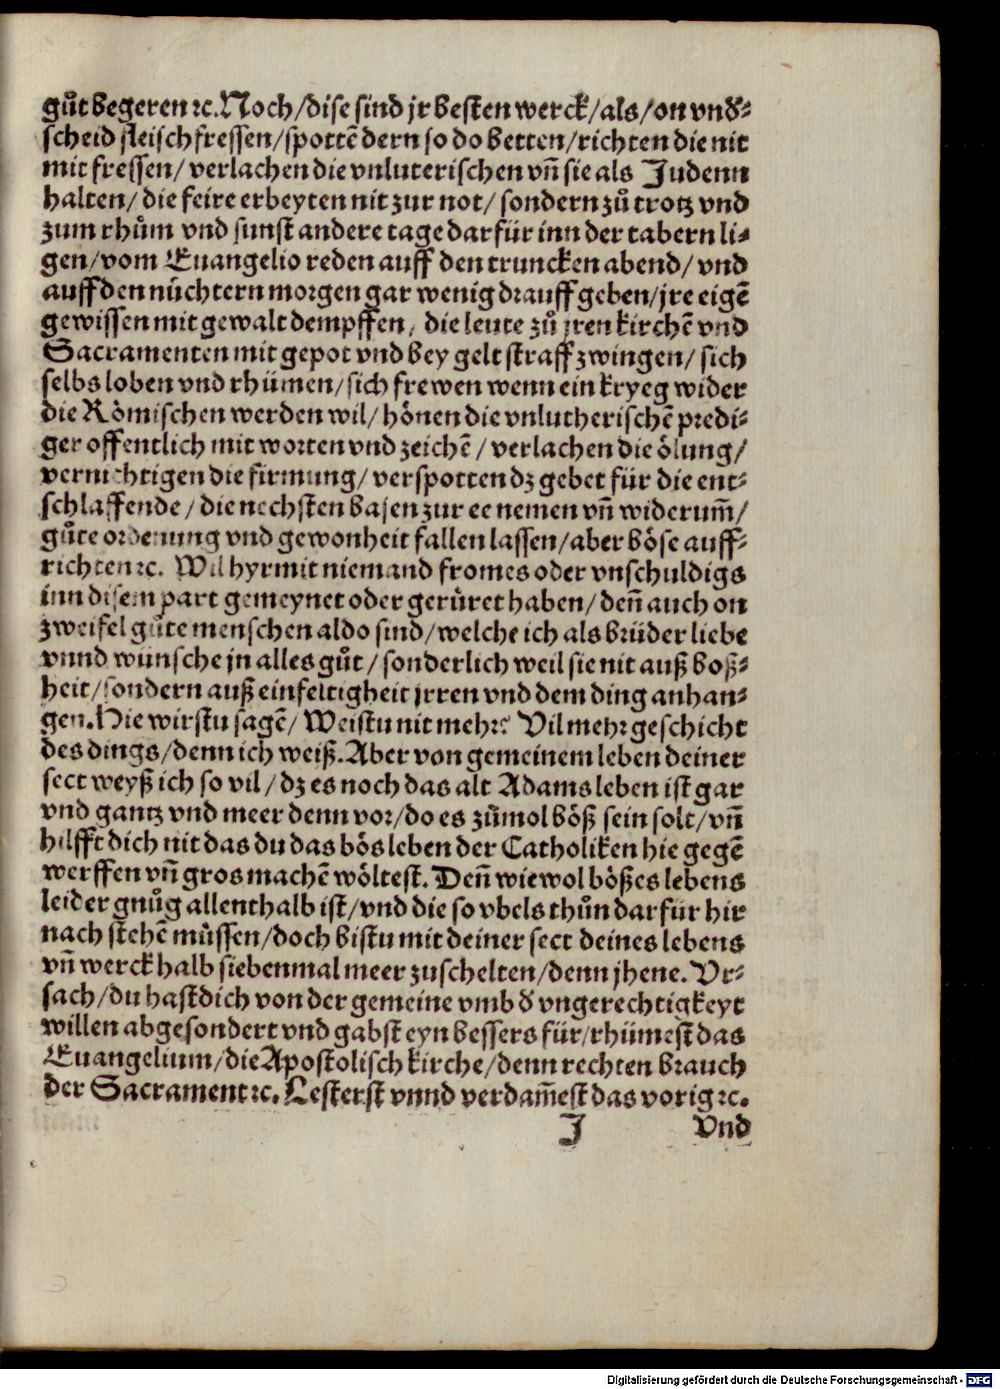 guͦt begeren ꝛc. Noch/dise sind jr besten werck/als/on vnd'⸗
scheid fleisch fressen/spottē dern so do betten/richten die nit
mit fressen/ verlachen die vnluterischen vn̄ sie als Judenn
halten/ die feire erbeyten nit zur not/ sondern zuͦ trotz vnd
zum rhuͦm vnd sunst andere tage darfür inn der tabern li⸗
gen/vom Euangelio reden auff den truncken abend/ vnd
auff den nuͤchtern morgen gar wenig drauff geben/jre eigē
gewissen mit gewalt dempffen, die leute zuͦ jren kirchē vnd
Sacramenten mit gepot vnd bey gelt straff zwingen/ sich
selbs loben vnd rhümen/sich frewen wenn ein kryeg wider
die Roͤmischen werden wil/ hoͤnen die vnlutherischē predi⸗
ger offentlich mit worten vnd zeichē/ verlachen die oͤlung/
vernichtigen die firmung/ verspotten dz gebet für die ent⸗
schlaffende/ die nechsten basen zur ee nemen vn̄ widerum̄/
guͦte ordenung vnd gewonheit fallen lassen/aber boͤse auff⸗
richten ꝛc. Wil hyrmit niemand fromes oder vnschuldigs
inn disem part gemeynet oder geruͤret haben/ den̄ auch on
zweifel guͦte menschen aldo sind/welche ich als brüder liebe
vnnd wünsche jn alles guͦt/ sonderlich weil sie nit auß boß⸗
heit/sondern auß einfeltigheit jrren vnd dem ding anhan⸗
gen. Hie wirstu sagē/ Weistu nit mehr? Vil mehr geschicht
des dings/denn ich weiß. Aber von gemeinem leben deiner
sect weyß ich so vil/ dz es noch das alt Adams leben ist gar
vnd gantz vnd meer denn vor/do es zuͦmol boͤß sein solt/vn̄
hilfft dich nit das du das boͤs leben der Catholiken hie gegē
werffen vn̄ gros machē woͤltest. Den̄ wiewol boͤßes lebens
leider gnuͦg allenthalb ist/vnd die so vbels thuͦn darfür hir
nach stehē muͤssen/doch bistu mit deiner sect deines lebens
vn̄ werck halb siebenmal meer zuschelten/denn jhene. Vr⸗
sach/du hast dich von der gemeine vmb d' vngerechtigkeyt
willen abgesondert vnd gabst eyn bessers für/rhümest das
Euangelium/die Apostolisch kirche/denn rechten brauch
der Sacrament ꝛc. Lesterst vnnd verdam̄est das vorig ꝛc.
J Vnd
Digitalisierung gefördert durch die Deutsche Forschungsgemeinschaft - DFG